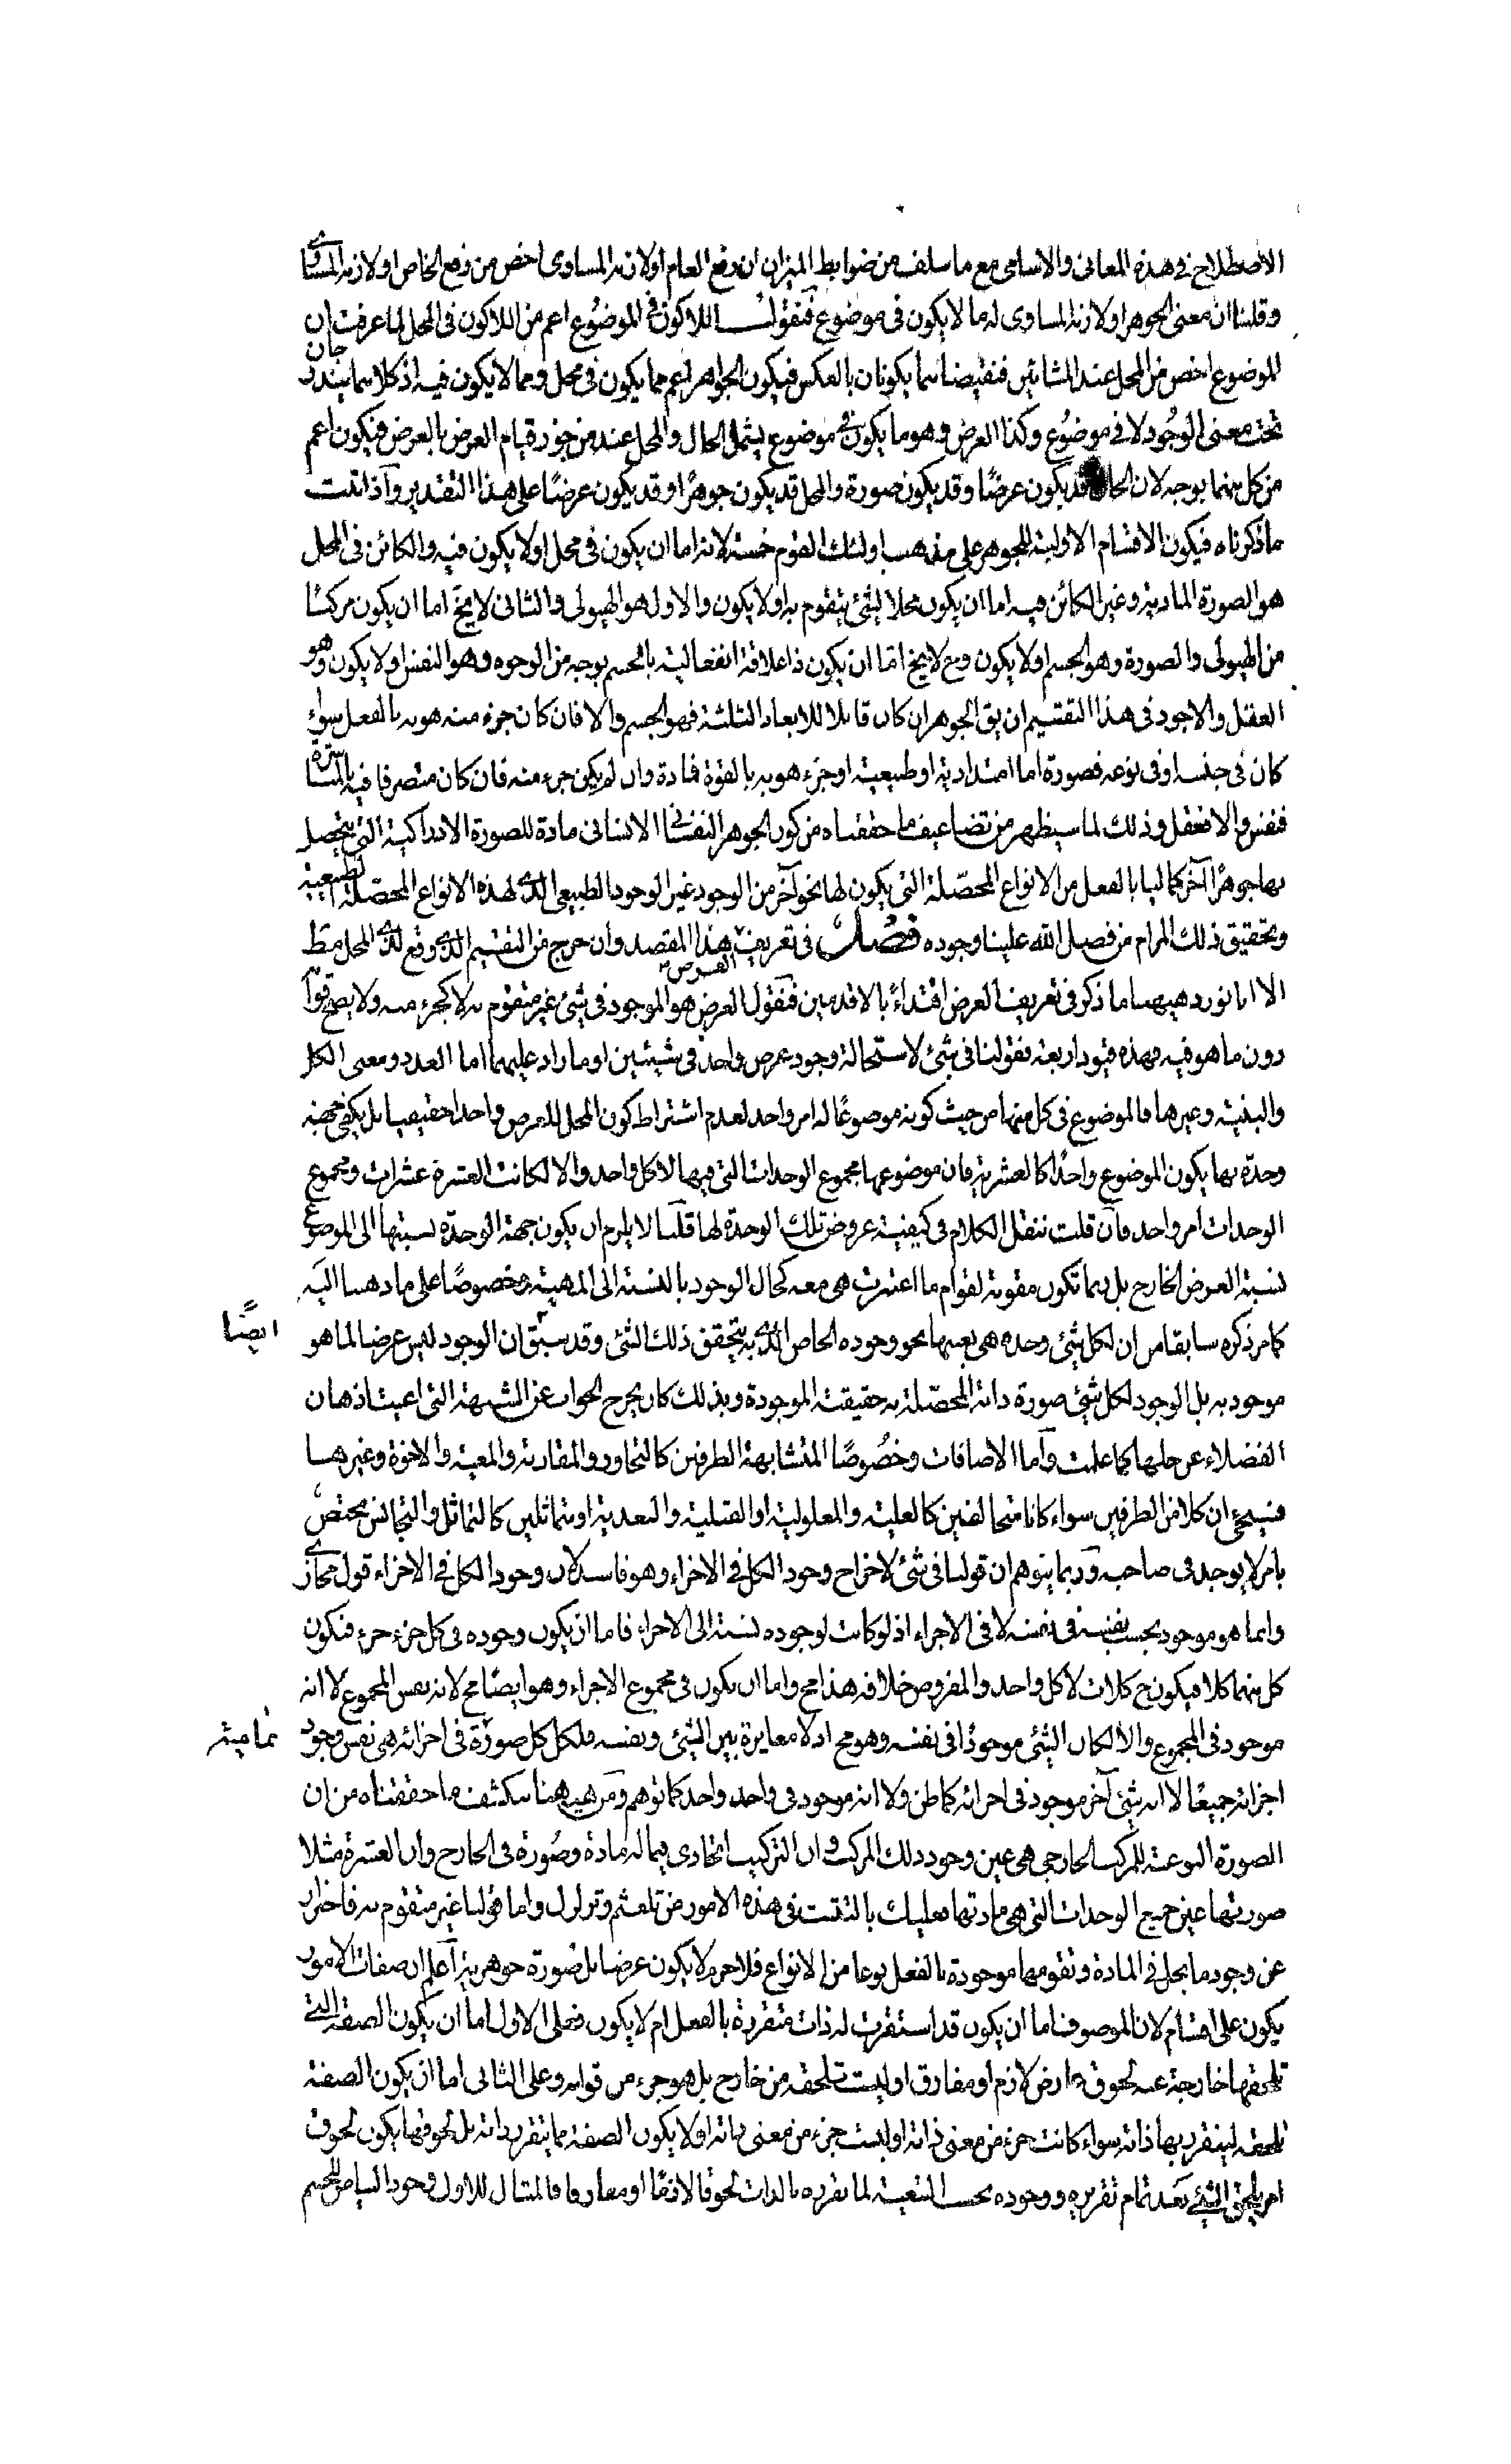 الاصطلاح في هذه المعانى والاسامى مع ما سلف من ضوابط الميزان ان رفع العام او لازمه المساوى اخص من رفع الخاص او لازمه المساوى
وقلنا ان معنى الجوهر او لازمه المساوى له ما لا يكون فى موضوع فنقول اللاكون فى الموضوع اعم من اللاكون فى المحل لما عرفت ان
الموضوع اخص من المحل عند المشائين فنقيضاهما يكونان بالعكس فيكون الجواهر اعم مما يكون فى محل ومما لا يكون فيه اذ كلاهما يندرجان
تحت معنى الوجود لا فى موضوع وكذا العرض وهو ما يكون فى موضوع يشمل الحال والمحل عند من جوز قيام العرض بالعرض فيكون اعم
من كل منهما بوجه لان الحال قد يكون عرضًا وقد يكون صورة والمحل قد يكون جوهرًا وقد يكون عرضًا على هذا التقدير وآذا تقت
ما ذكرناه فيكون الاقسام الاولية للجوهر على مذهب اولئك القوم خمسة لانه اما ان يكون فى محل او لا يكون فيه والكائن فى المحل
هو الصورة المادية وغير الكائن فيه اما ان يكون محلا لشئ يتقوم به او لا يكون والاول هو الهيولى والثانى لا يخ اما ان يكون مركبًا
من الهيولى والصورة وهو الجسم او لا يكون وح لا يخ اما ان يكون ذا علاقة انفعالية بالجسم بوجه من الوجوه وهو النفس او لا يكون وهو
العقل والاجود فى هذا التقسيم ان يق الجوهر ان كان قابلا للابعاد الثلثة فهو الجسم والا فان كان جزء منه هو به بالفعل سواء
كان فى جنسه او فى نوعه فصورة اما امتدادية او طبيعية او جزء هو به بالقوة فمادة وان لم يكن جزء منه فان كان متصرفا فيه بالمباشرة
فنفس والا فعقل وذلك لما سيظهر من تضاعيف ما حققناه من كون الجوهر النفسانى الانسانى مادة للصورة الادراكية التى يتحصل
بها جوهرًا آخر كماليا بالفعل من الانواع المحصّلة التى يكون لها نحو آخر من الوجود غير الوجود الطبيعى الذى لهذه الانواع المحصّلة الطبيعية
وتحقيق ذلك المرام من فضل الله علينا وجوده فصل فى تعريف العرض هذا المقصد وان خرج من التقسيم الذى وقع لذى المحل مط
الا انا نورد هيهنا ما ذكر فى تعريف العرض اقتداءً بالاقدمين فنقول العرض هو الموجود فى شئ غير متقوم به لا كجزء منه ولا يصح قوامه
دون ما هو فيه فهذه قيود اربعة فقولنا فى شئ لاستحالة وجود عرض واحد فى شيئين او ما زاد عليهما اما العدد ومعنى الكل
والبنية وغيرها فالموضوع فى كل منها من حيث كونه موضوعًا له امر واحد لعدم اشتراط كون المحل للعرض واحدا حقيقيا بل يكفى جهة
وحدة بها يكون الموضوع واحدًا كالعشرية فان موضوعها مجموع الوحدات التى فيها لا كل واحد والا لكانت العشرة عشرات ومجموع
الوحدات امر واحد فآن قلت ننقل الكلام فى كيفية عروض تلك الوحدة لها قلنا لا يلزم ان يكون جهة الوحدة نسبتها الى الموضوع
نسبة العرض الخارج بل ربما تكون مقومة لقوام ما اعتبرت هى معه كحال الوجود بالنسبة الى المهية وخصوصًا على ما ذهبنا اليه
كما مر ذكره سابقا من ان لكل شئ وحده هى بعينها نحو وجوده الخاص الذى به يتحقق ذلك الشئ وقد سبق ان الوجود ليس عرضا لما هو
ايضًا
موجود به بل الوجود لكل شئ صورة ذاته المحصّلة به حقيقته الموجودة وبذلك كان يخرج الجواب عن الشبهة التى اعيت اذهان
الفضلاء عن حلها كما علمت وآما الاضافات وخصُوصًا المتشابهة الطرفين كالتجاور والمقاربة والمعية والاخوة وغيرها
فسيجئ ان كلا من الطرفين سواء كانا متخالفين كالعلية والمعلولية او القبلية والبعدية او متماثلين كالتماثل والتجانس مختص
بامر لا يوجد فى صاحبه وربما يتوهم ان قولنا فى شئ لاخراج وجود الكل فى الاجزاء وهو فاسد لان وجود الكل فى الاجزاء قول مجازى
وانما هو موجود بحسب نفسه فى نفسه لا فى الاجزاء اذ لو كانت لوجوده نسبة الى الاجزاء فاما ان يكون وجوده فى كل جزء جزء فيكون
كل منهما كلا فيكون ح كلات لا كل واحد والمفروض خلافه هذا مح واما ان يكون فى مجموع الاجزاء وهو ايضًا مح لانه نفس المجموع لا انه
موجود فى المجموع والا لكان الشئ موجودًا فى نفسه وهو مح اذ لا مغايرة بين الشئ ونفسه فلكل كل صورة فى اجزائه هى نفس وجود
تمامية
اجزائه جميعًا لا انه شئ آخر موجود فى اجزائه كما ظن ولا انه موجود فى واحد واحد كما توهم ومن هيهنا ينكشف ما حققناه من ان
الصورة النوعية للمركب الخارجى هى عين وجود ذلك المركب وان التركيب اتحادى فيما له مادة وصُورة فى الخارج وان العشرة مثلا
صورتها عين جميع الوحدات التى هى مادتها فعليك بالتثبت فى هذه الامور من تلعثم وتزلزل واما قولنا غير متقوم به فاحتراز
عن وجود ما يحل فى المادة وتقومها موجودة بالفعل نوعا من الانواع فلا جرم لا يكون عرضا بل صُورة جوهرية آعلم ان صفات الامور
يكون على اقسام لان الموصوف اما ان يكون قد استقرت له ذات متقررة بالفعل ام لا يكون فعلى الاول اما ان يكون الصفة التى
تلحقها خارجة عنه لحوق عارض لازم او مفارق او ليست تلحقه من خارج بل هو جزء من قوامه وعلى الثانى اما ان يكون الصفة
تلحقه ليتقرر بها ذاته سواء كانت جزء من معنى ذاته او ليست جزء من معنى ذاته او لا يكون الصفة مما يتقرر ذاته بل لحوقها يكون لحوق
امر يلحق الشئ بعد تمام تقرره ووجوده بحسب التبعية لما يقرره بالذات لحوقا لازمًا او مفارقا فالمثال للاول وجود البياض للجسم